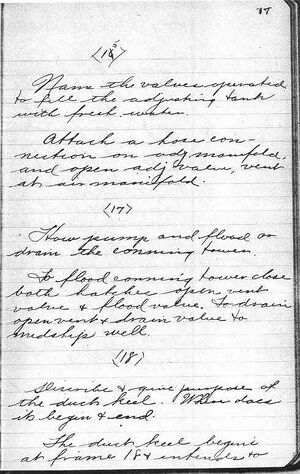 17
<16>
Name the valves operated
to fill the adjusting tank
with fresh water.
Attach a hose con-
nection on adj manifold,
and open adj valve, vent
at air manifold.
<17>
How pump and flood or
drain the conning tower.
To flood conning tower close
both hatches open vent
valve & flood valve. To drain
open vent & drain valve to
midship well.
<18>
Describe & give purpose of
the duct keel. Where does
it begin & end.
The duct keel begins
at frame 18 & extends to